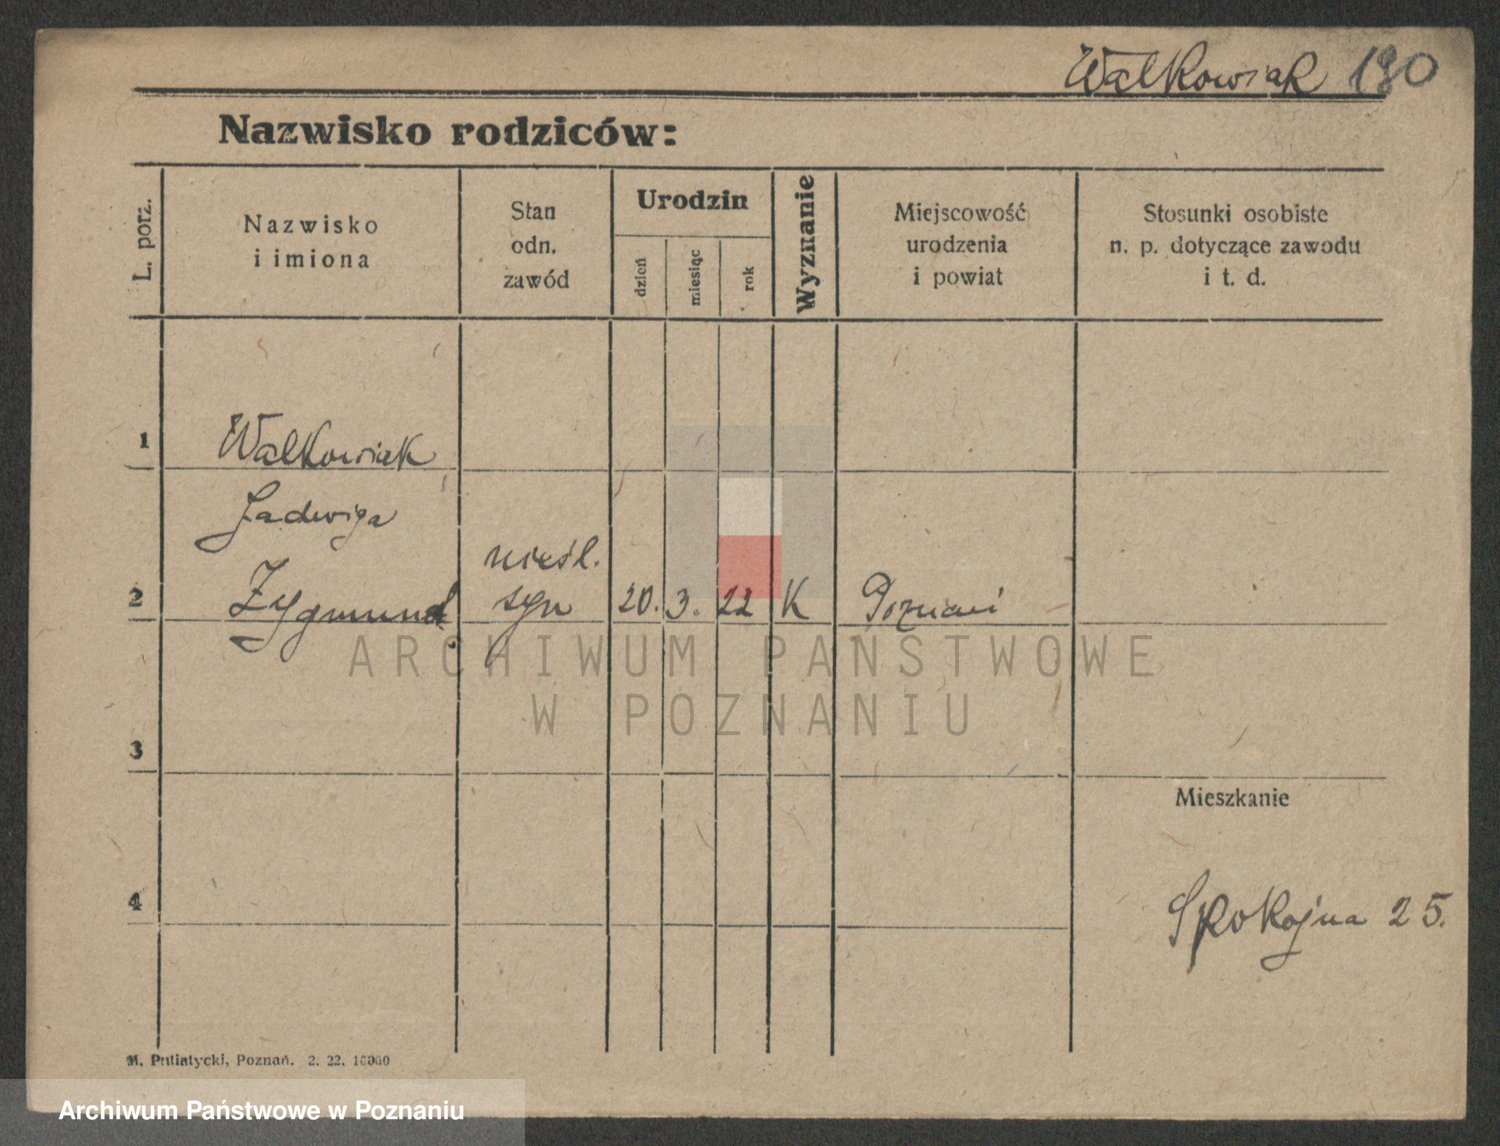 Walkowiak 190
Nazwisko rodziców:
L. porz.
Nazwisko
i imiona
Stan
odn.
zawód
Urodzin
dzień
miesiąc
rok
Wyznanie
Miejscowość
urodzenia
i powiat
Stosunki osobiste
n. p. dotyczące zawodu
i t. d.
1 Walkowiak
Jadwiga
nieśl.
2 Zygmund syn 20. 3. 22 K Poznań
ARCHIWUM PAŃSTWOWE
W POZNANIU
3
Mieszkanie
4
Spokojna 25.
M. Putiatycki, Poznań. 2. 22. 10000
Archiwum Państwowe w Poznaniu